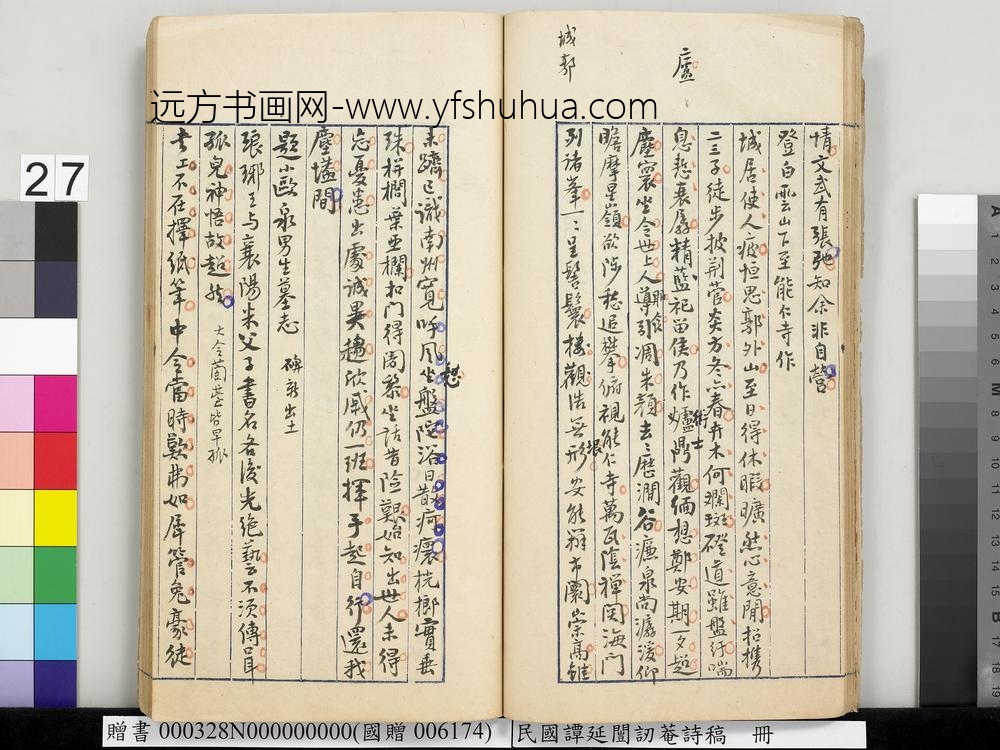 城郭
廬
情文武有張弛知余非自營
登白雲山下至能仁寺作
城居使人疲恒思郭外山至日得休暇曠然心意閒招攜
二三子徒步披荆菅炎方冬亦春卉木何斕斑磴道雖盤紆喘
息愁衰孱精藍祀留侯乃作爐鼎觀緬想鄭安期一夕超
術士
塵寰坐令世上人導引凋朱顏去去歷澗谷濂泉尚潺湲仰
瞻摩星嶺欲涉愁追攀俯視能仁寺萬瓦陰禪関海門
列諸峯一一呈髻鬟樓觀浩無形安能辨市闤崇高雖
垠
未躋已識南州寬呼風坐盤陀浴日散疴瘝桄榔實垂
愁
珠栟櫚葉亞欄扣門得闍黎坐話昔險艱始知出世人未得
忘憂患出處誠異趣欣戚仍一班揮手起自行還我
塵壒間
題小歐泉男生墓志 碑新出土
琅琊王与襄陽米父子書名各後先絶藝不須傳口耳
孤兒神悟故超然 大令蘭臺皆早孤
書工不在擇紙筆中令當時歎弗如犀管兔豪徒
27
贈書 000328N000000000(國贈 006174)
民國譚延闓訒菴詩稿 冊
远方书画网-www.yfshuhua.com